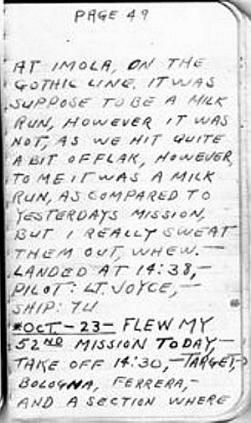 PAGE 49
AT IMOLA, ON THE
GOTHIC LINE. IT WAS
SUPPOSE TO BE A MILK
RUN, HOWEVER IT WAS
NOT, AS WE HIT QUITE
A BIT OF FLAK, HOWEVER,
TO ME IT WAS A MILK
RUN, AS COMPARED TO
YESTERDAYS MISSION,
BUT I REALLY SWEAT
THEM OUT, WHEW.—
LANDED AT 14:38,—
PILOT: LT. JOYCE,—
SHIP: 74
*OCT-23- FLEW MY
52ND MISSION TODAY—
TAKE OFF 14:30,—TARGET,—
BOLOGNA, FERRERA,—
AND A SECTION WHERE